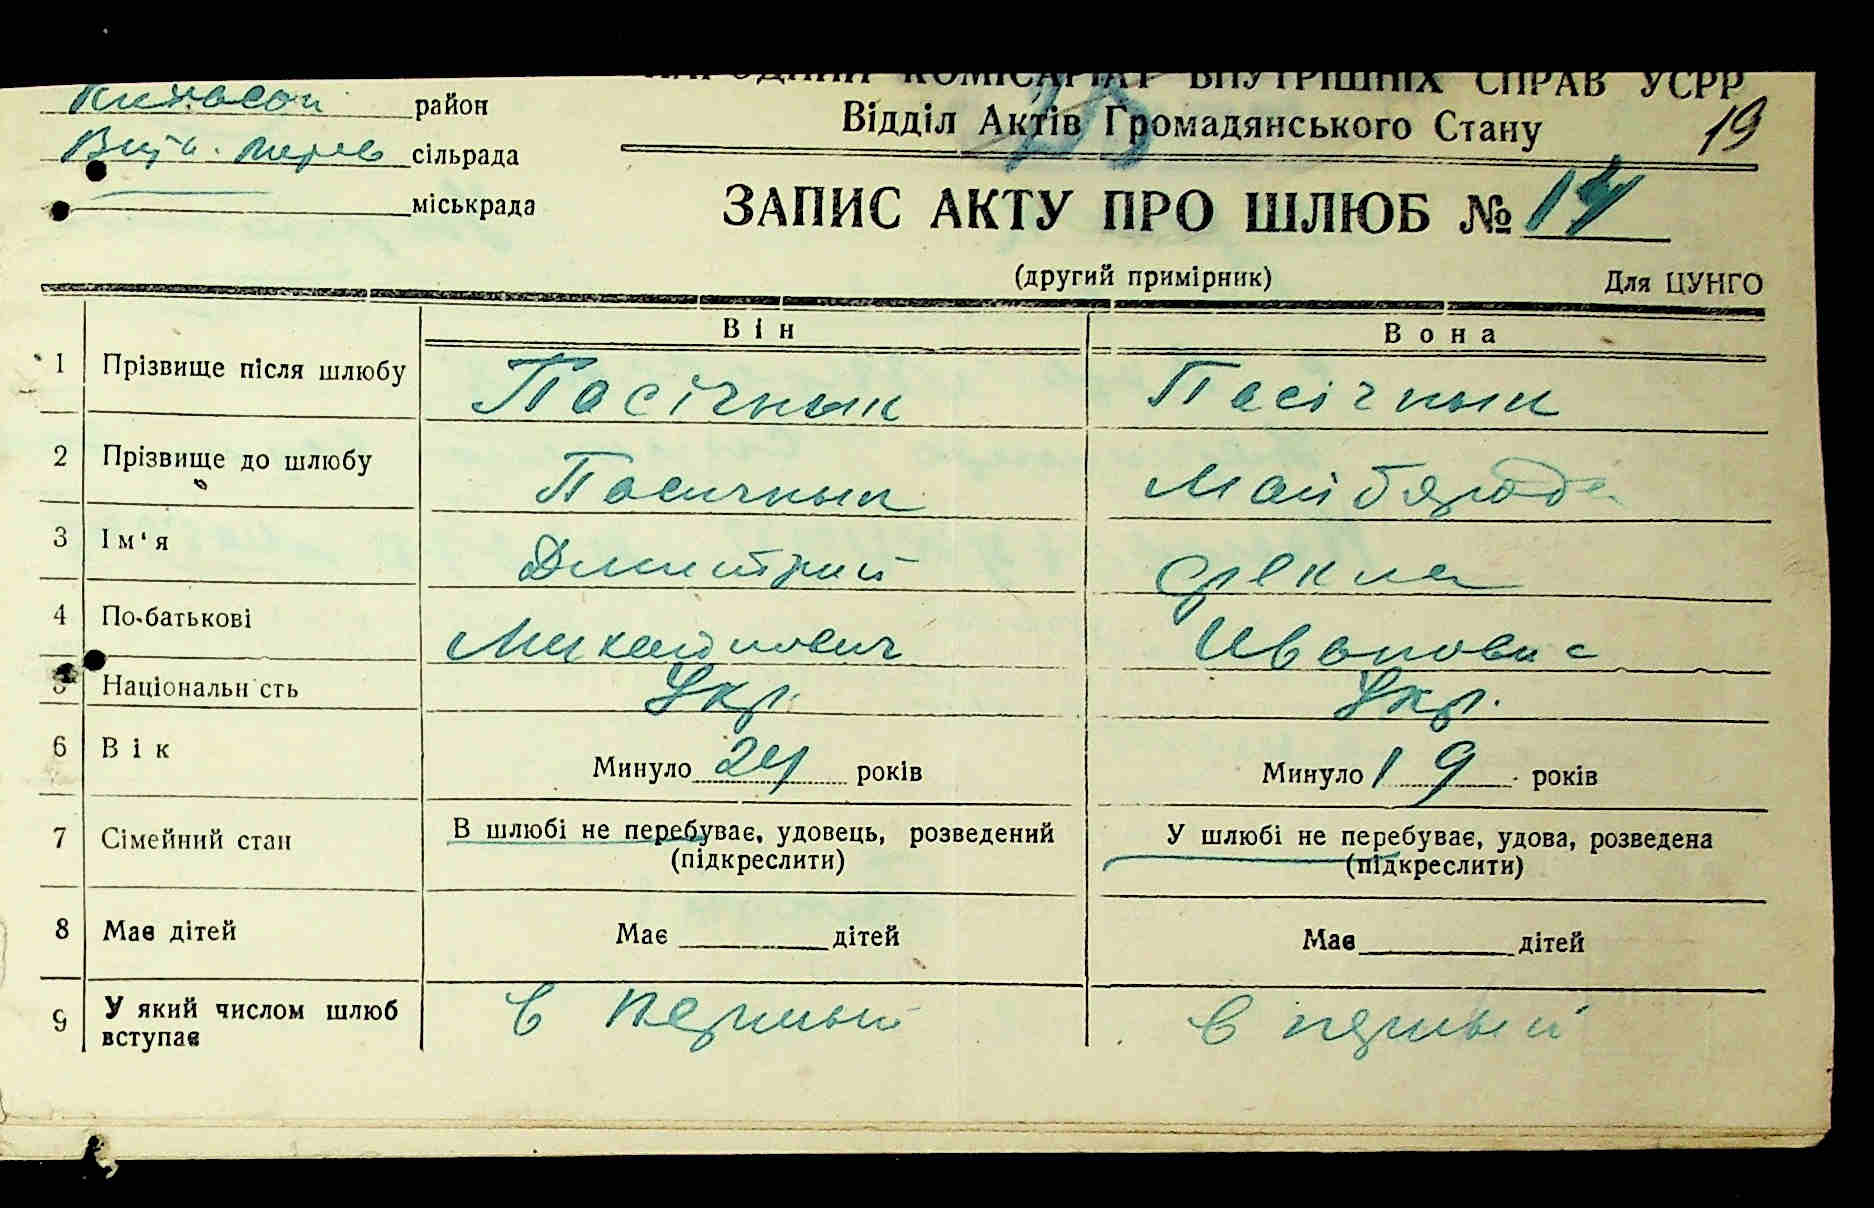 НАРОДНИЙ КОМІСАРІАТ ВНУТРІШНІХ СПРАВ УСРР
район
Відділ Актів Громадянського Стану 19
сільрада
міськрада
ЗАПИС АКТУ ПРО ШЛЮБ № 14
(другий примірник) Для ЦУНГО
Він Вона
1 Прізвище після шлюбу Пасічнык Пасічнык
2 Прізвище до шлюбу Пасичнык Майброда
3 Ім'я Дмитрий Фекла
4 По-батькові Михайлович Ивановна
5 Національн сть Укр. Укр.
6 Вік Минуло 24 років Минуло 19 років
7 Сімейний стан В шлюбі не перебуває, удовець, розведений У шлюбі не перебуває, удова, розведена
(підкреслити) (підкреслити)
8 Має дітей Має дітей Має дітей
9 У який числом шлюб вступає в первый в первый